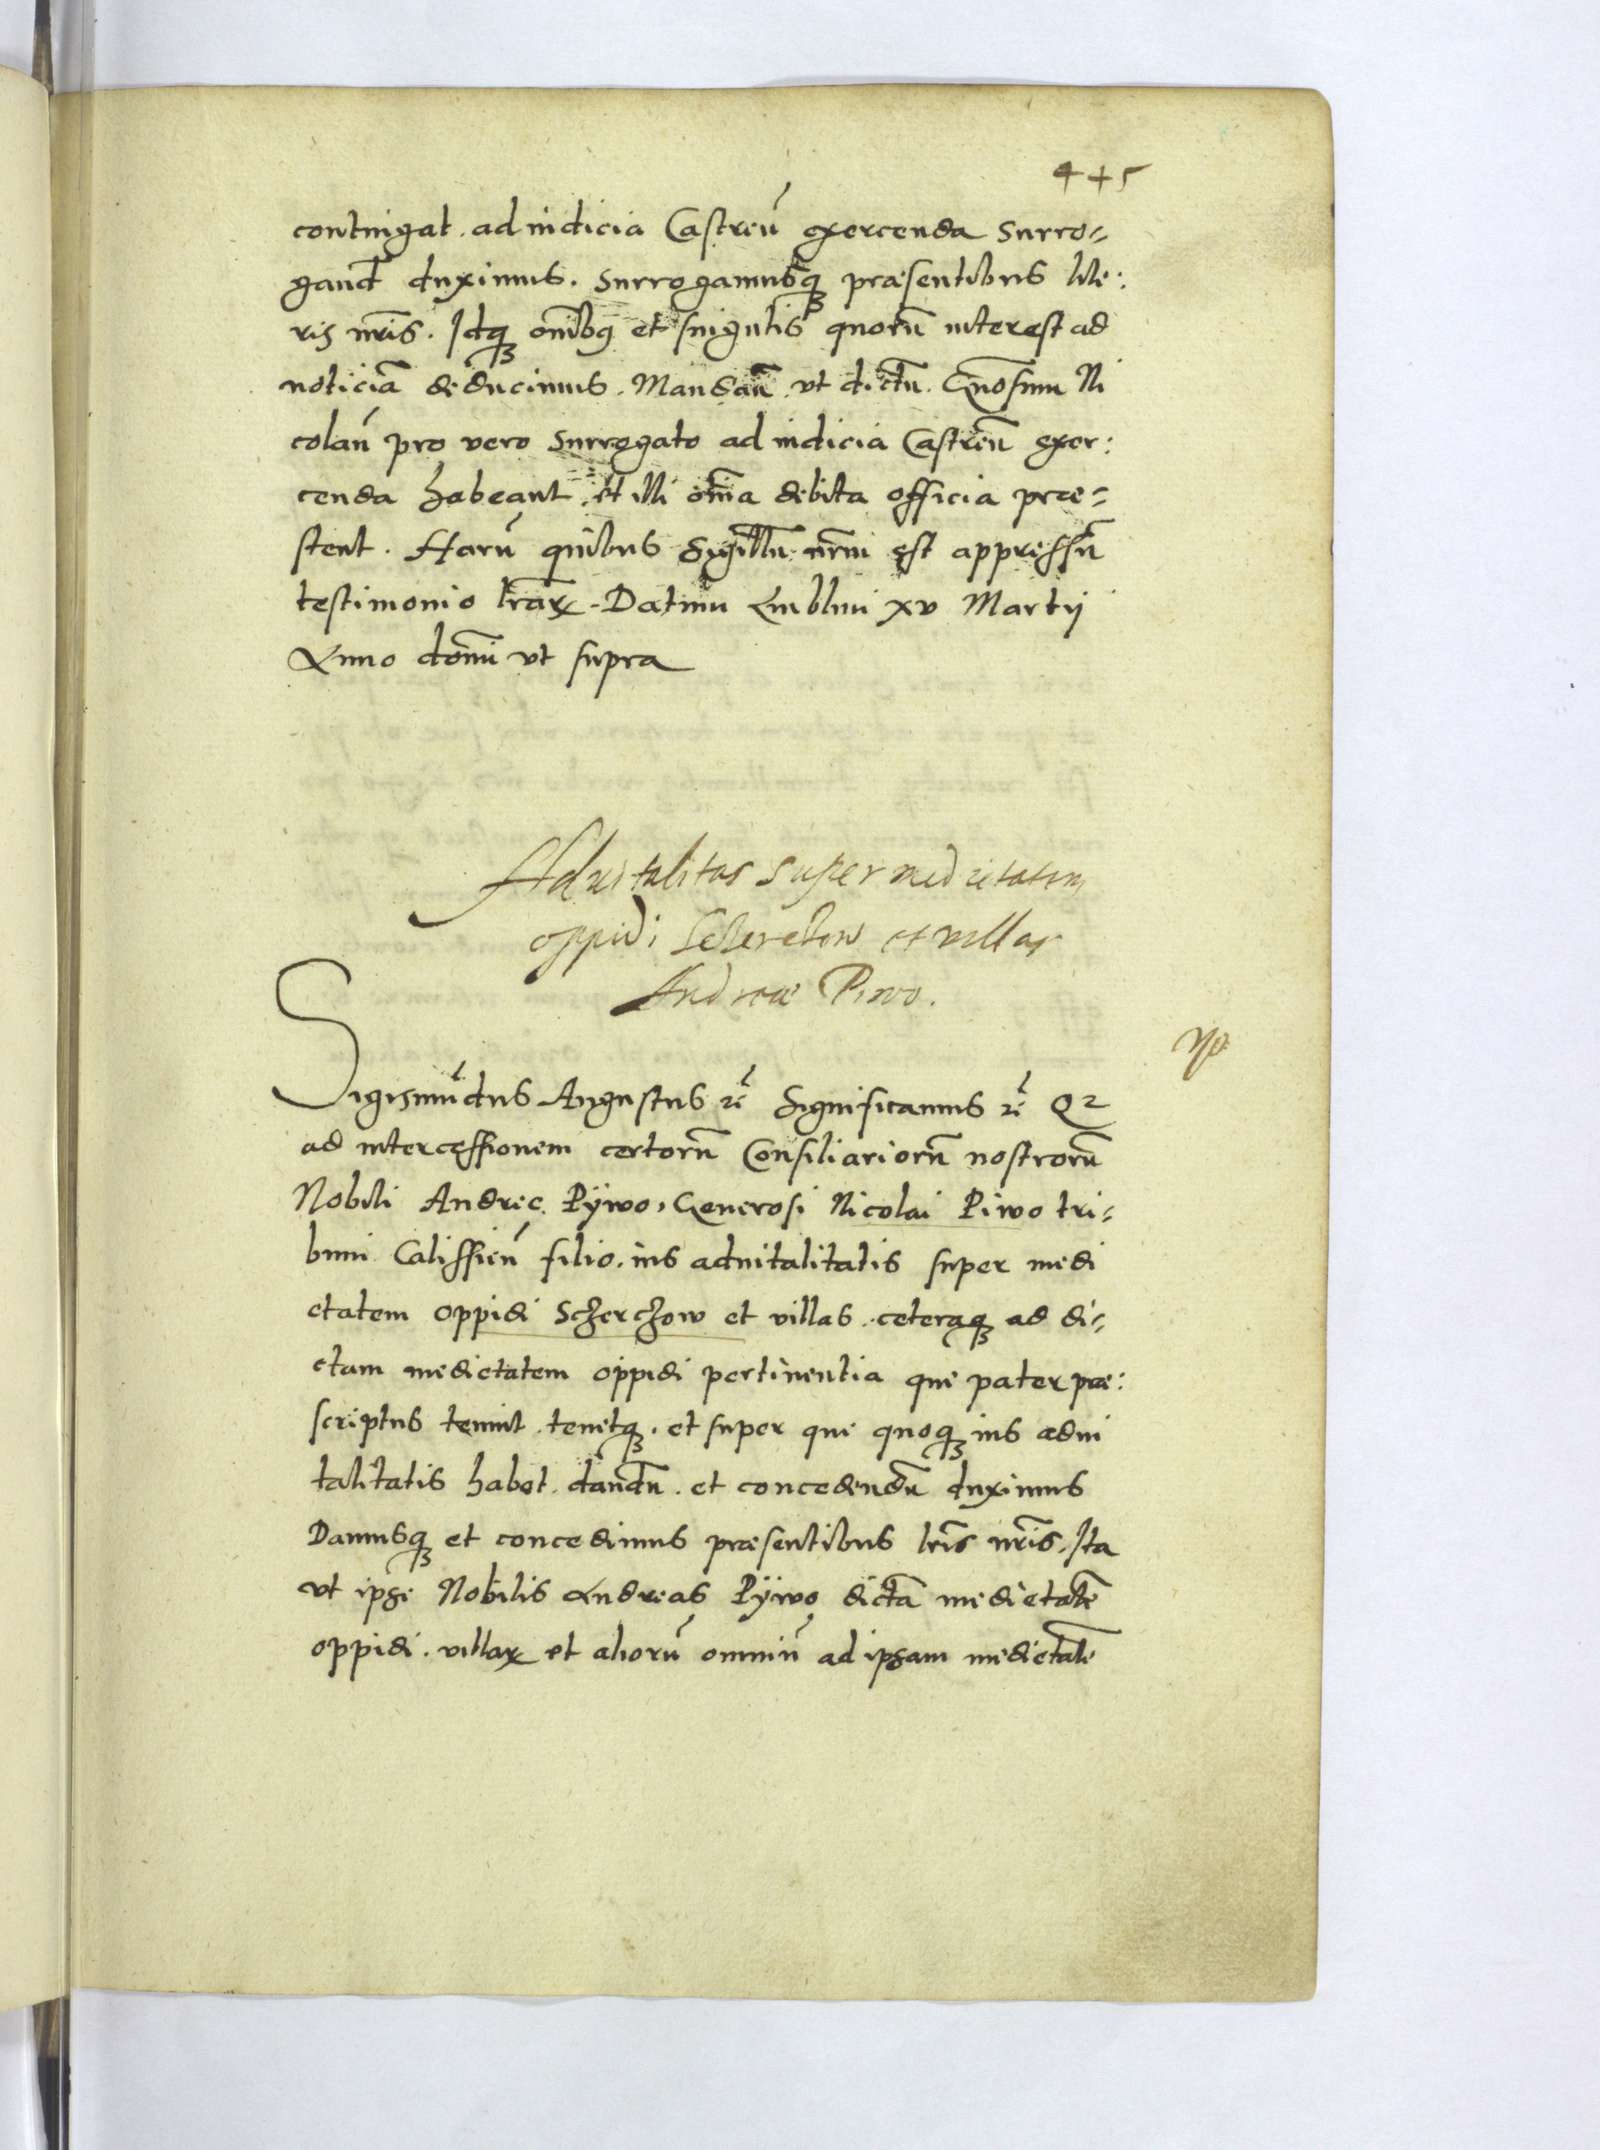 445
contingat. ad iudicia Castreñ exercenda Surro-
gand duximus. Surrogamusq₃ præsentibus lite:
ris nr̄is. Idq₃ om̄ibꝰ et singulis quorū interest ad
noticiā deducimus. Mandañ. vt dictū. Gnosum Ni
colaū pro vero Surrogato ad iudicia Castreñ exer:
cenda habeant. et illi om̄ia debita officia præ-
stent. Harū quibus Sigillū nrm̄ est appressū
testimonio lrarꝝ. Datum Lublini xv Martij
Anno domī vt supra
Aduitalitas super medietatem
oppidi et villas
Andreae Piwo.
Sigismūdus Augustus zc̄ Significamus zc̄ Qz
ad intercessionem certorū Consiliariorū nostrorū
Nobili Andreę Pÿwo, Generosi Nicolai Piwo tri-
buni Calissieñ filio. ius aduitalitatis super medi
etatem oppidi Scherchow et villas. ceteraq₃ ad di-
ctam medietatem oppidi pertinentia que pater præ:
scriptus tenuit. tenetq₃. et super que quoq₃ ius adui
talitatis habet. dandū. et concedendū duximus
Damusq₃ et concedimus præsentibus lrīs nr̄is. Ita
vt ipse Nobilis Andreas Pÿwo dictā medietatē
oppidi. villarꝝ et aliorū omniū ad ipsam medietatē